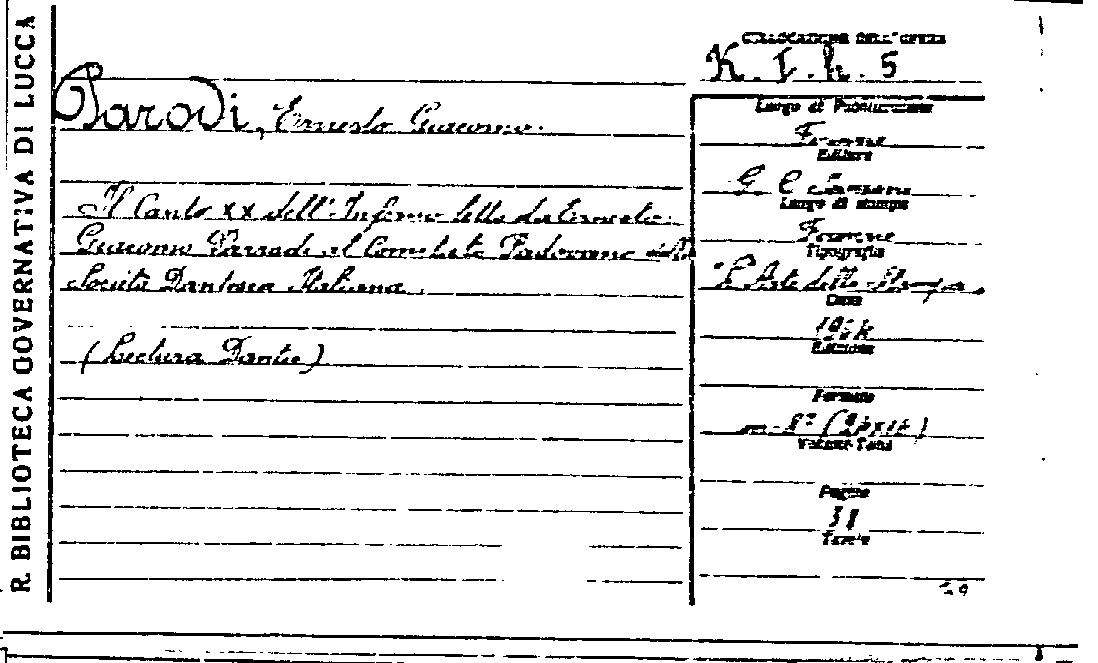 R. BIBLIOTECA GOVERNATIVA DI LUCCA
COLLOCAZIONE DELL'OPERA
K. I. h. 5
Parodi, Ernesto Giacomo.
Il Canto XX dell'Inferno letto da Ernesto
Giacomo Parodi al Comitato Padovano della
Società Dantesca Italiana.
(Lectura Dantis)
Luogo di Pubblicazione
Firenze
Editore
G. C. Sansoni
Luogo di stampa
Firenze
Tipografia
L'Arte della Stampa
Data
Edizione
Formato
in 8°
Volume-Tomi
Pagine
Tavole